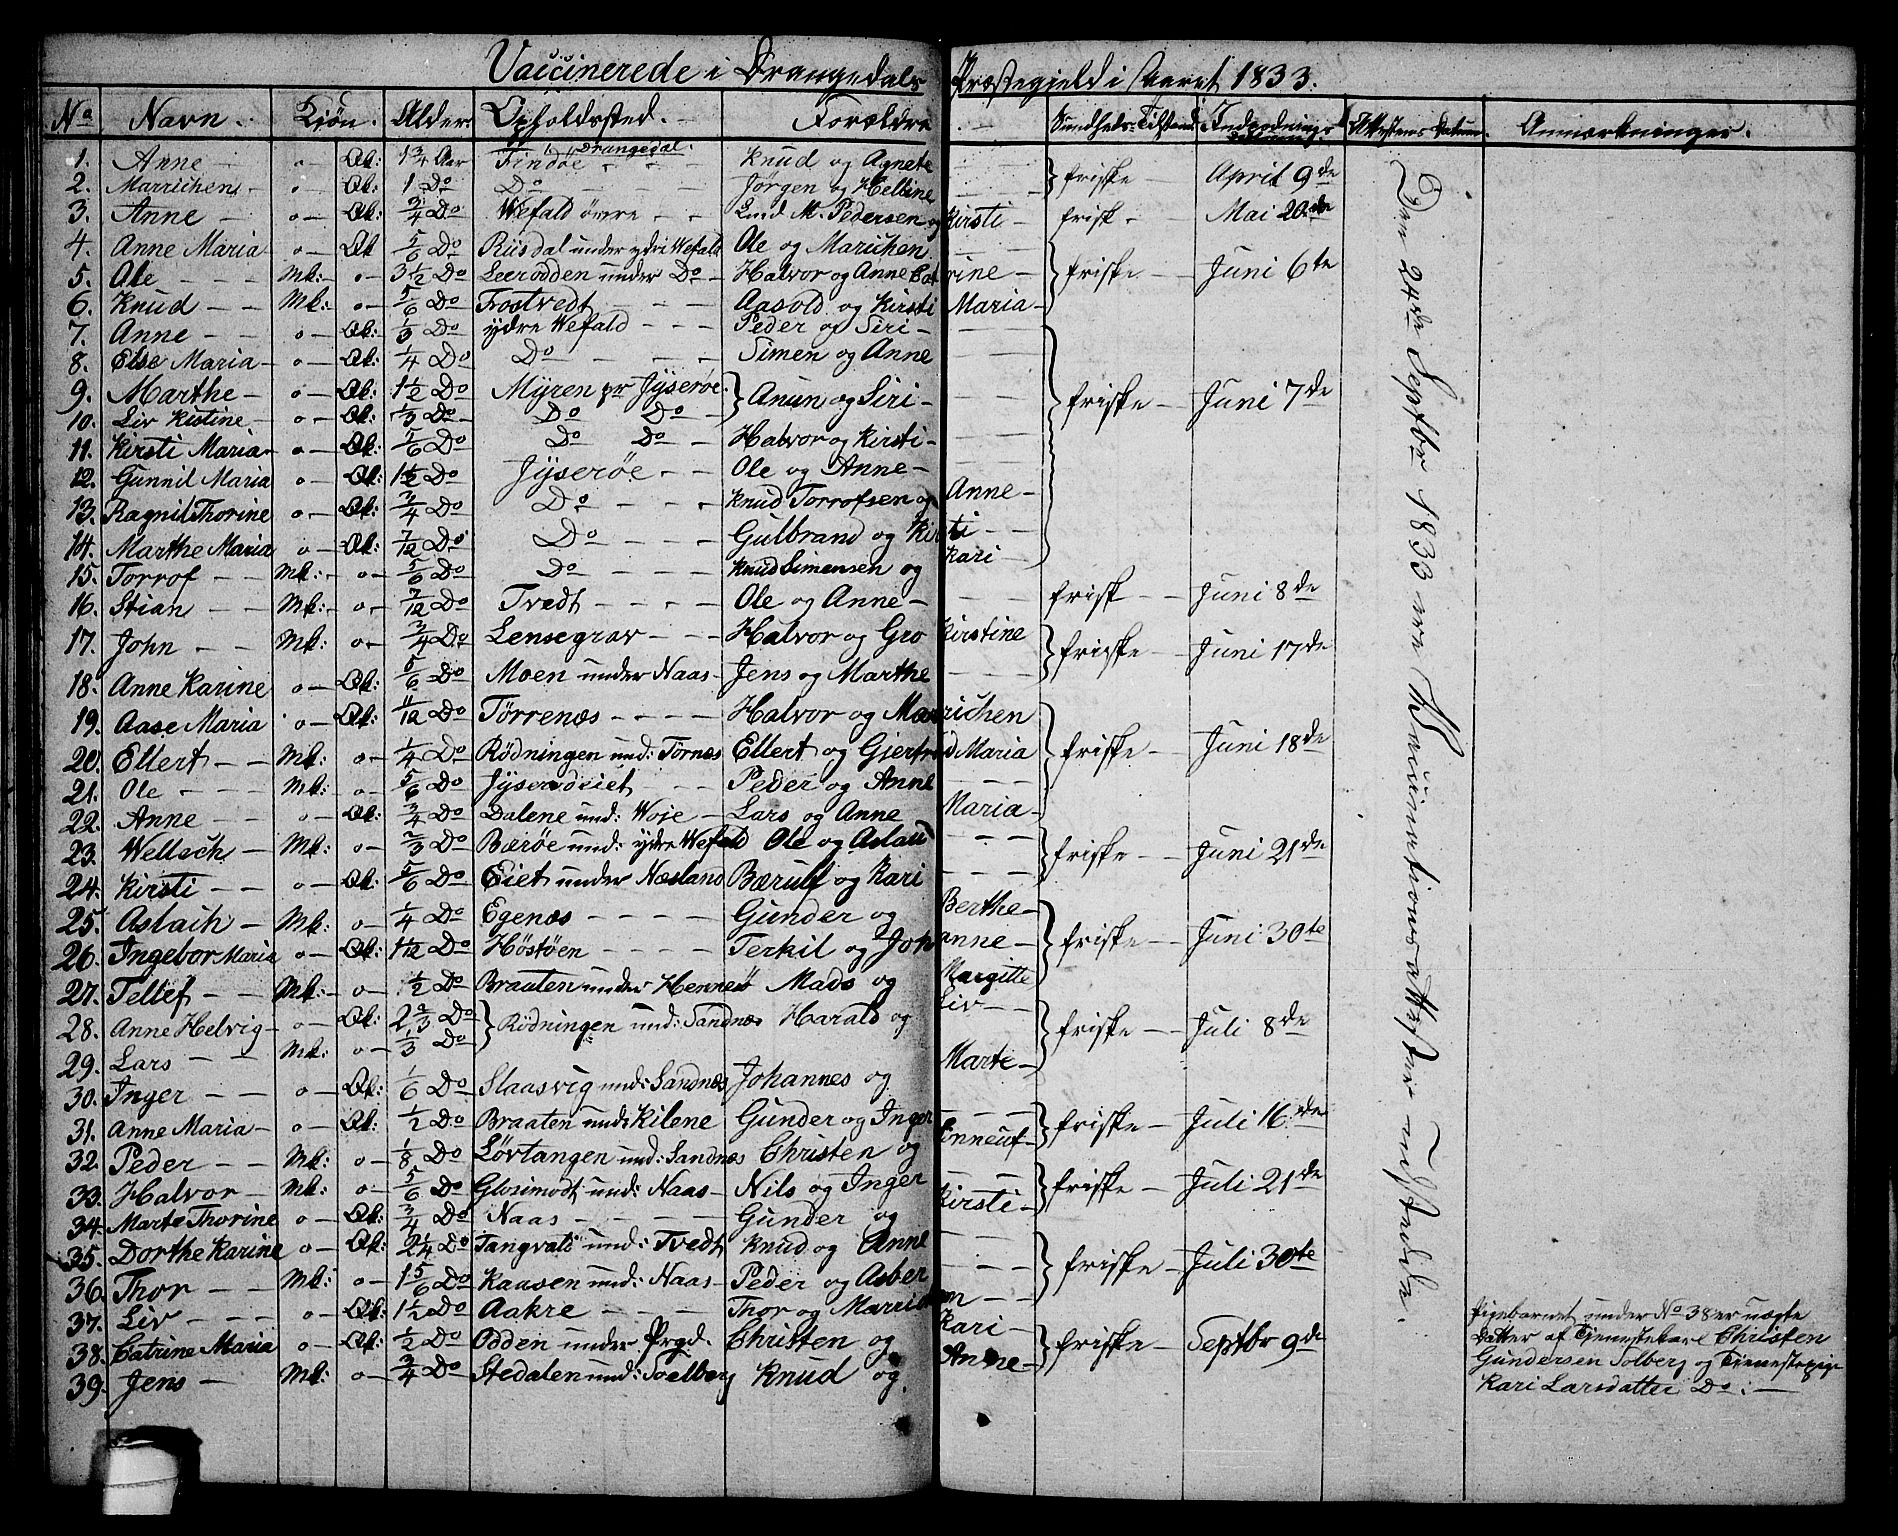 Vaccinerede i Drangedals Præstegield i Aaret 1833.
No Navn. Kiøn. Alder Opholdssted. Forældre Sundheds Tilstand Indpodnings Attestens Datum. Anmærkninger.
1. Anne - o - Qk: 1 3/4 Aar Findøe i Drangedal. Knud og Agnete } friske - April 9de
2. Marrichens - o - Qk: 1 Do Do - Jørgen og Helline
3. Anne - o - Qk: 3/4 Do Wefald øvre - Knud M. Pedersen og Kirsti - frisk - Mai 20de
4. Anne Maria - o - Qk 5/6 Do Riisdal under ydre Wefald Ole og Marichen } friske - Juni 6te
5. Ole - Mk: o - 3 1/2 Do Leerodden under Do - Halvor og Anne Catrine -
6. Knud - Mk: o - 5/6 Do Trostvedt - Aasold og Kirsti Maria -
7. Anne - o - Qk: 1/3 Do ydre Wefald - Peder og Siri - } friske - Juni 7de
8. Else Maria - o - Qk: 1/4 Do Do - Simen og Anne
9. Marthe - o - Qk: 1 1/2 Do Myren pr Jyserøe } Anun og Siri -
10. Liv Kistine - o - Qk: 1/3 Do Do Do
11. Kirsti Maria - o - Qk: 5/6 Do Do Do - Halvor og Kirsti -
12. Gunnil Maria o - Qk: 1 1/2 Do Jyserøe - Ole og Anne -
13. Ragnil Thorine o - Qk: 3/4 Do Do - Knud Torrofsen og Anne -
14. Marthe Maria o - Qk: 7/12 Do Do - Gulbrand og Kirsti -
15. Torrof - Mk: - o - 5/6 Do Do - Knud Simensen og Kari -
16. Stian - Mk: o - 7/12 Do Tvedt - Ole og Anne - frisk - Juni 8de
17. John - Mk: o - 3/4 Do Lensegrav - Halvor og Gro Kirstine } friske - Juni 17de
18. Anne Karine o - Qk: 5/6 Do Moen under Naas - Jens og Marthe
19. Aase Maria o - Qk: 11/12 Do Tørrenæs - Halvor og Marrichen } friske - Juni 18de
20. Ellert - Mk: o - 1/4 Do Rødningen und: Tørnæs Ellert og Gjertrud Maria
21. Ole - Mk: o - 5/6 Do Jyserødeiet - Peder og Anne
22. Anne - o - Qk: 3/4 Do Dalene und: Woje - Lars og Anne Maria -
23. Wellach - Mk: o - 2/3 Do Bærøe und: ydre Wefald Ole og Aslau } friske - Juni 21de
24. Kirsti - o - Qk: 5/6 Do Eiet under Næsland Bærulf og Kari
25. Aslach - Mk: o - 1/4 Do Egenæs - Gunder og Berthe - } friske - Juni 30te
26. Ingebor Maria o - Qk: 1 1/12 Do Høstøen Terkil og Johanne -
27. Tellef - Mk: - o - 1/2 Do Braaten under Hennesø Mads og Margitte
28. Anne Helvig - o - Qk: 2 2/3 Do } Rødningen und: Sandnæs Harald og Liv - } friske - Juli 8de
29. Lars - Mk: o - 1/3 Do
30. Inger - o - Qk: 1/6 Do Slaasvig und: Sandnæs Johannes og Marte -
31. Anne Maria - o - Qk: 1/2 Do Braaten und: Kilene Gunder og Inger } friske - Juli 16de
32. Peder - Mk: o - 1/8 Do Løvtangen und: Sandnæs Christen og
33. Halvor - Mk: o - 5/6 Do Glosimodt und: Naas - Nils og Inger } friske - Juli 21de
34. Marte Thorine o - Qk: 3/4 Do Naas - Gunder og Kirsti -
35. Dorthe Karine o - Qk: 2 1/4 Do Tangvald und: Tvedt Knud og Anne } friske - Juli 30te
36. Thor - Mk: o - 1 5/6 Do Kaasen und: Naas - Peder og Asber
37. Liv - o - Qk: 1 1/2 Do Aakre - Thor og Marrichen -
38. Catrine Maria o - Qk: 1/2 Do Odden under Prgd. Christen og Kari - } friske - Septbr 9de
39. Jens - Mk: o - 3/4 Do Stedalen und: Soelberg Knud og Anne -
Den 24de Septbr 1833 ere Vaccinations Attester udstedde.
Pigebarnet under No 38 er uægte
Datter af Tienestekarl Christen
Gundersen Solberg og Tienestepige
Kari Larsdatter Do: -